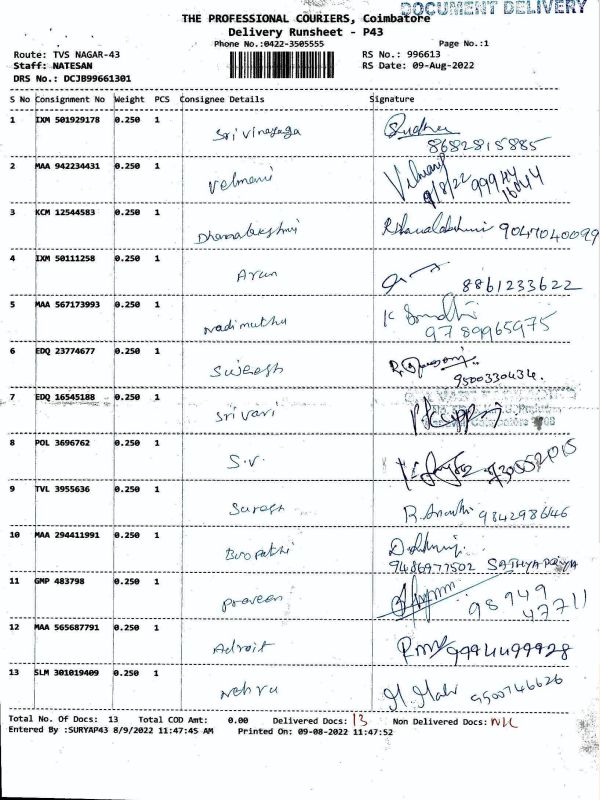 DOCUMENT DELIVERY
THE PROFESSIONAL COURIERS, Coimbatore
Delivery Runsheet - P43
Phone No.:0422-3505555 Page No.:1
Route: TVS NAGAR-43 RS No.: 996613
Staff: NATESAN RS Date: 09-Aug-2022
DRS No.: DCJB99661301
S No Consignment No Weight PCS Consignee Details Signature
1 IXM 501929178 0.250 1 Sri Vinayaga
8682815885
2 MAA 942234431 0.250 1 Velmani
9/8/22 99944 16044
3 KCM 12544583 0.250 1 Dhanalakshmi 9047040099
4 IXM 50111258 0.250 1 Arun 8861233622
5 MAA 567173993 0.250 1 Nadimuthu
9789965975
6 EDQ 23774677 0.250 1 Suresh
9500330434.
7 EDQ 16545188 0.250 1 Sri vari
8 POL 3696762 0.250 1 S.V.
9 TVL 3955636 0.250 1 Suresh R. Ananthi 9842986146
10 MAA 294411991 0.250 1 Boopathi
9486977502 SATHYA PRIYA
11 GMP 483798 0.250 1 Praveen 98949
47711
12 MAA 565687791 0.250 1 Adroit 9994499928
13 SLM 301019409 0.250 1 Nehru 9500746626
Total No. Of Docs: 13 Total COD Amt: 0.00 Delivered Docs: 13 Non Delivered Docs: NIL
Entered By :SURYAP43 8/9/2022 11:47:45 AM Printed On: 09-08-2022 11:47:52